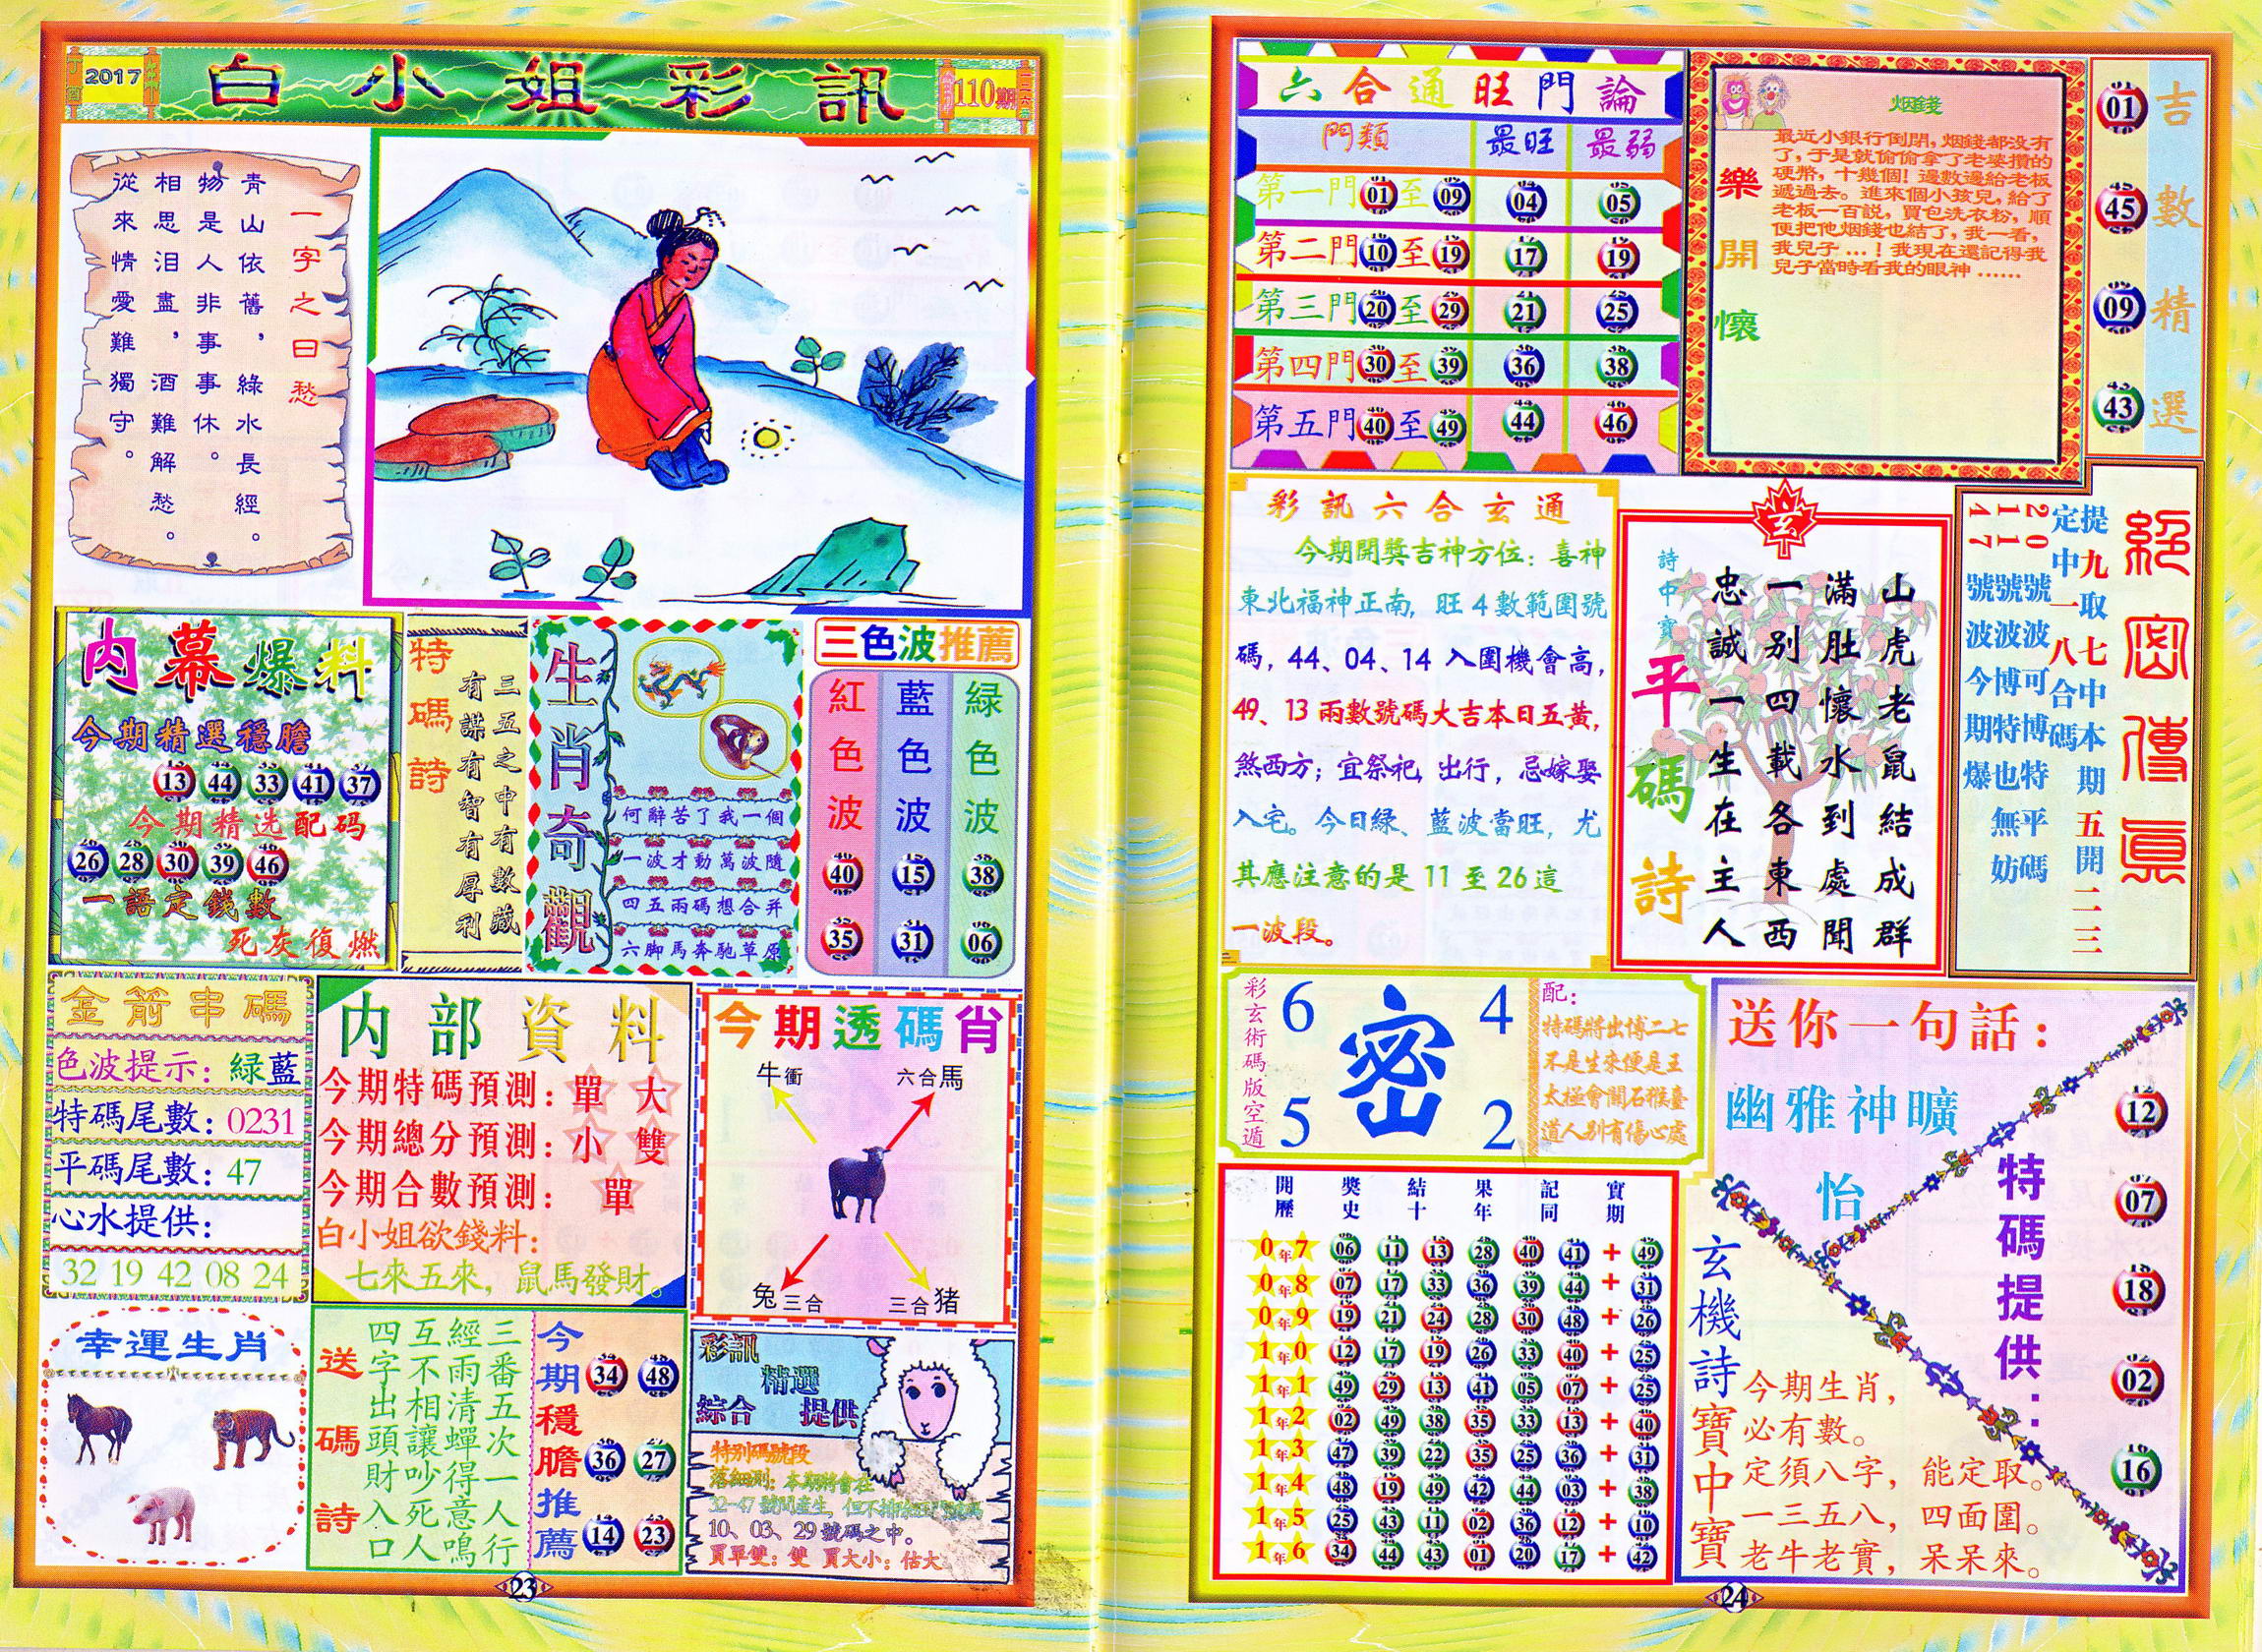 2017
白小姐彩訊
110期
一字之曰愁
青山依舊，綠水長經。
物是人非事事休。
相思泪盡，酒難解愁。
從來情愛難獨守。
内幕爆料
今期精選穩膽
13 44 33 41 37
今期精选配码
26 28 30 39 46
一語定錢數
死灰復燃
特碼詩
三五之中有數藏
有謀有智有厚利
生肖奇觀
何辭苦了我一個
一波才動萬波隨
四五兩碼想合并
六脚馬奔馳草原
三色波推薦
紅色波 40 35
藍色波 15 31
緑色波 38 06
金箭串碼
色波提示：緑藍
特碼尾數：0231
平碼尾數：47
心水提供：
32 19 42 08 24
内部資料
今期特碼預測：單 大
今期總分預測：小 雙
今期合數預測：單
白小姐欲錢料：
七來五來，鼠馬發財。
今期透碼肖
牛衝
六合馬
兔三合
三合猪
幸運生肖
送碼詩
三番五次一人行
經雨清蟬得意鳴
互不相讓吵死人
四字出頭財入口
今期穩膽推薦
34 48
36 27
14 23
彩訊
精選
綜合 提供
特别碼號段
落細則：本期將會在
10、03、29號碼之中。
買單雙：雙 買大小：估大
23
六合通旺門論
門類 最旺 最弱
第一門 01 至 09 04 05
第二門 10 至 19 17 19
第三門 20 至 29 21 25
第四門 30 至 39 36 38
第五門 40 至 49 44 46
樂開懷
烟錢
最近小銀行倒閉，烟錢都没有
了，于是就偷偷拿了老婆攢的
硬幣，十幾個！邊數邊給老板
遞過去。進來個小孩兒，給了
老板一百説，買包洗衣粉，順
便把他烟錢也結了，我一看，
我兒子…！我現在還記得我
兒子當時看我的眼神……
吉數精選
01
45
09
43
彩訊六合玄通
今期開獎吉神方位：喜神
東北福神正南，旺4數範圍號
碼，44、04、14入圍機會高，
49、13兩數號碼大吉本日五黄，
煞西方；宜祭祀，出行，忌嫁娶
入宅。今日緑、藍波當旺，尤
其應注意的是11至26這
一波段。
玄
詩中寶
平碼詩
山虎老鼠結成群
滿肚懷水到處聞
一别四載各東西
忠誠一生在主人
絕密傳真
提九取七中本期五開二二三
定中一八合碼
20號波可博特平碼
11號波博特也無妨
47號波今期爆
彩玄術碼版空遁
6 4
密
5 2
配：
特碼將出博二七
不是生來便是王
太極會開石猴臺
道人别有傷心處
送你一句話：
幽雅神曠
怡
特碼提供：
12
07
18
02
16
玄機詩寶中寶
今期生肖，
必有數。
定須八字，能定取。
一三五八，四面圍。
老牛老實，呆呆來。
開獎結果記實
歷史十年同期
07年 06 11 13 28 40 41 + 49
08年 07 17 33 36 39 44 + 31
09年 19 21 24 28 30 48 + 26
10年 12 17 19 26 33 40 + 25
11年 49 29 13 41 05 07 + 25
12年 02 49 38 35 33 13 + 40
13年 47 39 22 35 25 36 + 31
14年 48 19 49 42 44 03 + 38
15年 25 43 11 02 36 12 + 10
16年 34 44 43 01 20 17 + 42
24